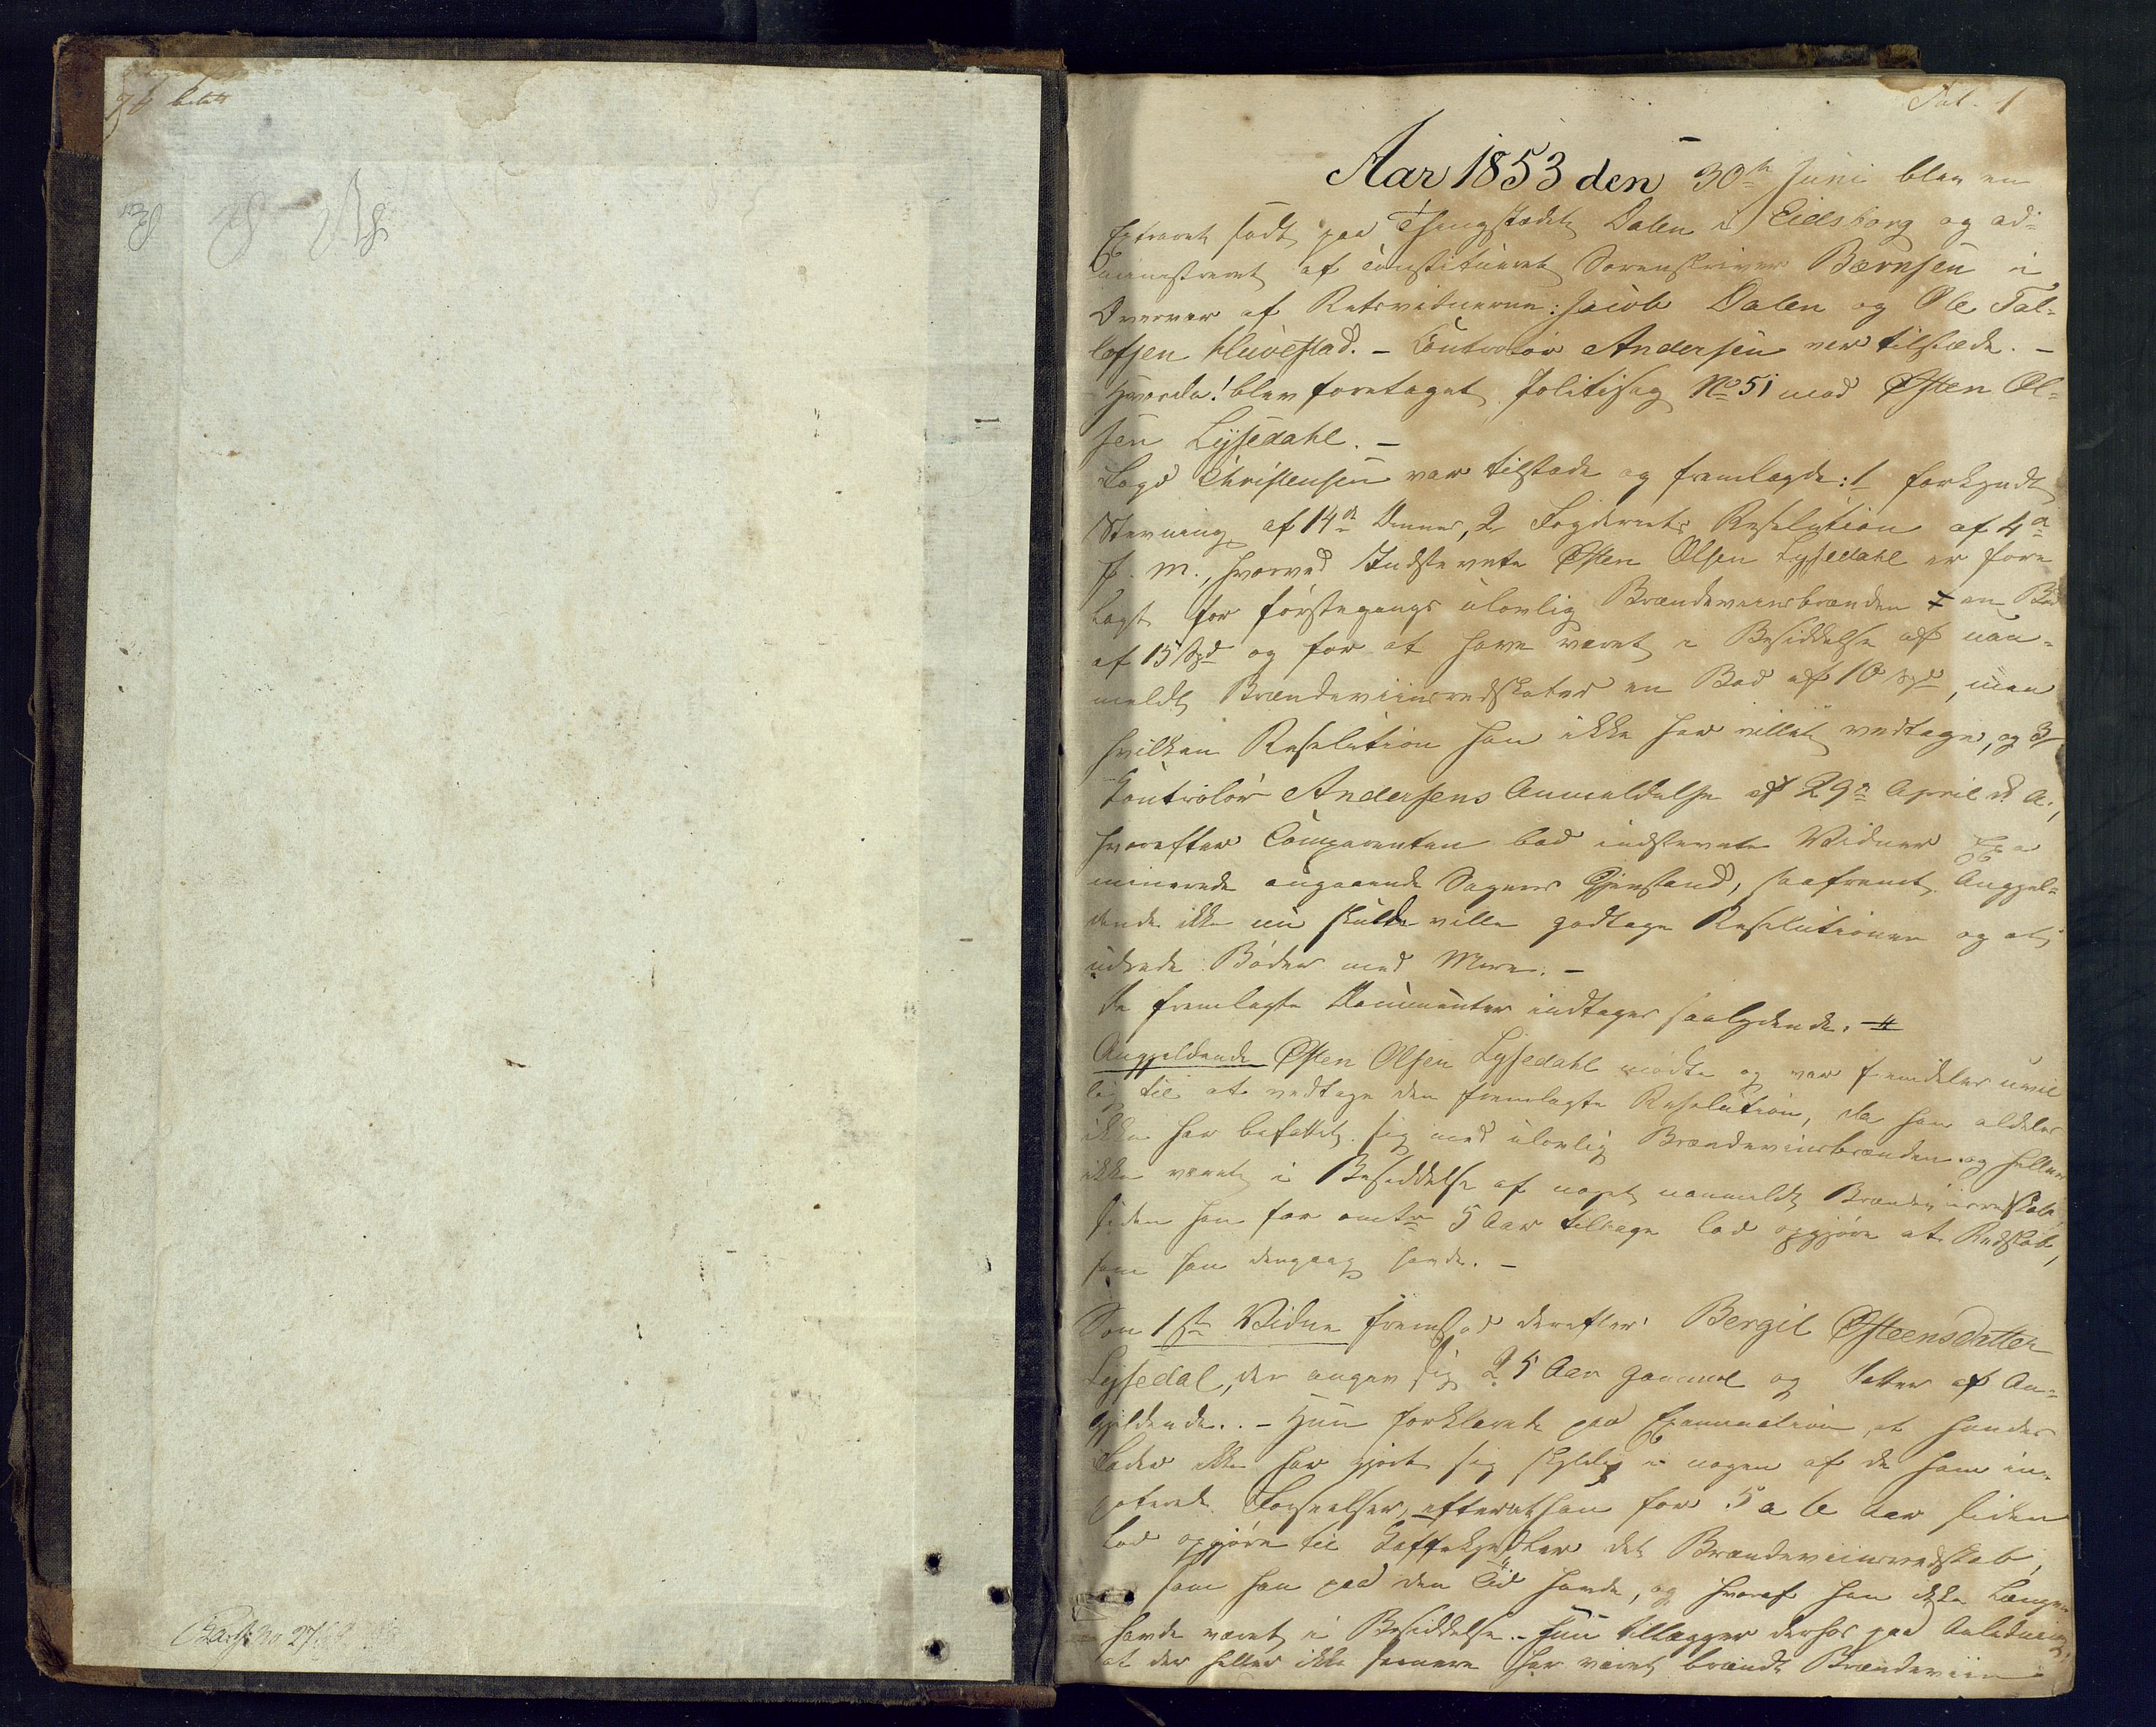 Fol. 1
Aar 1853 den 30te Juni blev en
Extraret sadt paa Thingstedet Dalen i Eidsborg og ad-
ministreret af constitueret Sorenskriver Børnsen i
Overvær af Retsvidnerne: Jacob Dalen og Ole Tal-
lefsen Huvestad. - Controlør Andersen var tilstæde. -
Hvorda! blev foretaget Politisag No 51 mod Østen Ol-
sen Lysedahl. -
Fogd Christensen var tilstede og fremlagde: 1 forkyndt
Stevning af 14de dennes, 2 Fogderiets Resolution af 4de
f. M., hvorved Indstevnte Østen Olsen Lysedahl er fore
lagt for førstegangs ulovlig Brændeviinsbrænden en Bod
af 15 Spd og for at have været i Besiddelse af uan-
meldt Brændeviinsredskaber en Bod af 10 Spd, men
hvilken Resolution han ikke har villet vedtage, og 3/
Controlør Andersens Anmeldelse af 29de April d. A.,
hvorefter Comparenten bad indstevnte Vidner Exa
minerede angaaende Sagens Gjenstand, saafremt Angjel-
dende ikke nu skulde ville godtage Resolutionen og at
udrede Bøder med Mere. -
De fremlagte Documenter indtages saalydende. -
Angjeldende Østen Olsen Lysedahl mødte og var fremdeles uvil
lig til at vedtage den fremlagte Resolution, da han aldeles
ikke har befattet sig med ulovlig Brændeviinsbrænden og heller
ikke været i Besiddelse af noget uanmeldt Brændeviinsredskab,
siden han for omtr 5 Aar tilbage lod opgjøre at Redskab,
som han dengang havde. -
Som 1ste Vidne fremstod derefter: Bergit Østeensdatter
Lysedal, der angav sig 25 Aar gammel og Datter af An-
gjeldende. - Hun forklarede paa Examination, at hendes
Fader ikke har gjort sig skyldig i nogen af de ham im-
puterede Forseelser, efterat han for 5 a 6 Aar siden
lod opgjøre til Kaffekjedler det Brændeviinsredskab,
som han paa den Tid havde, og hvoraf han ikke længer
havde været i Besiddelse. - Hun tillægger derhos paa Anledning,
at der heller ikke senere har været brændt Brændeviin